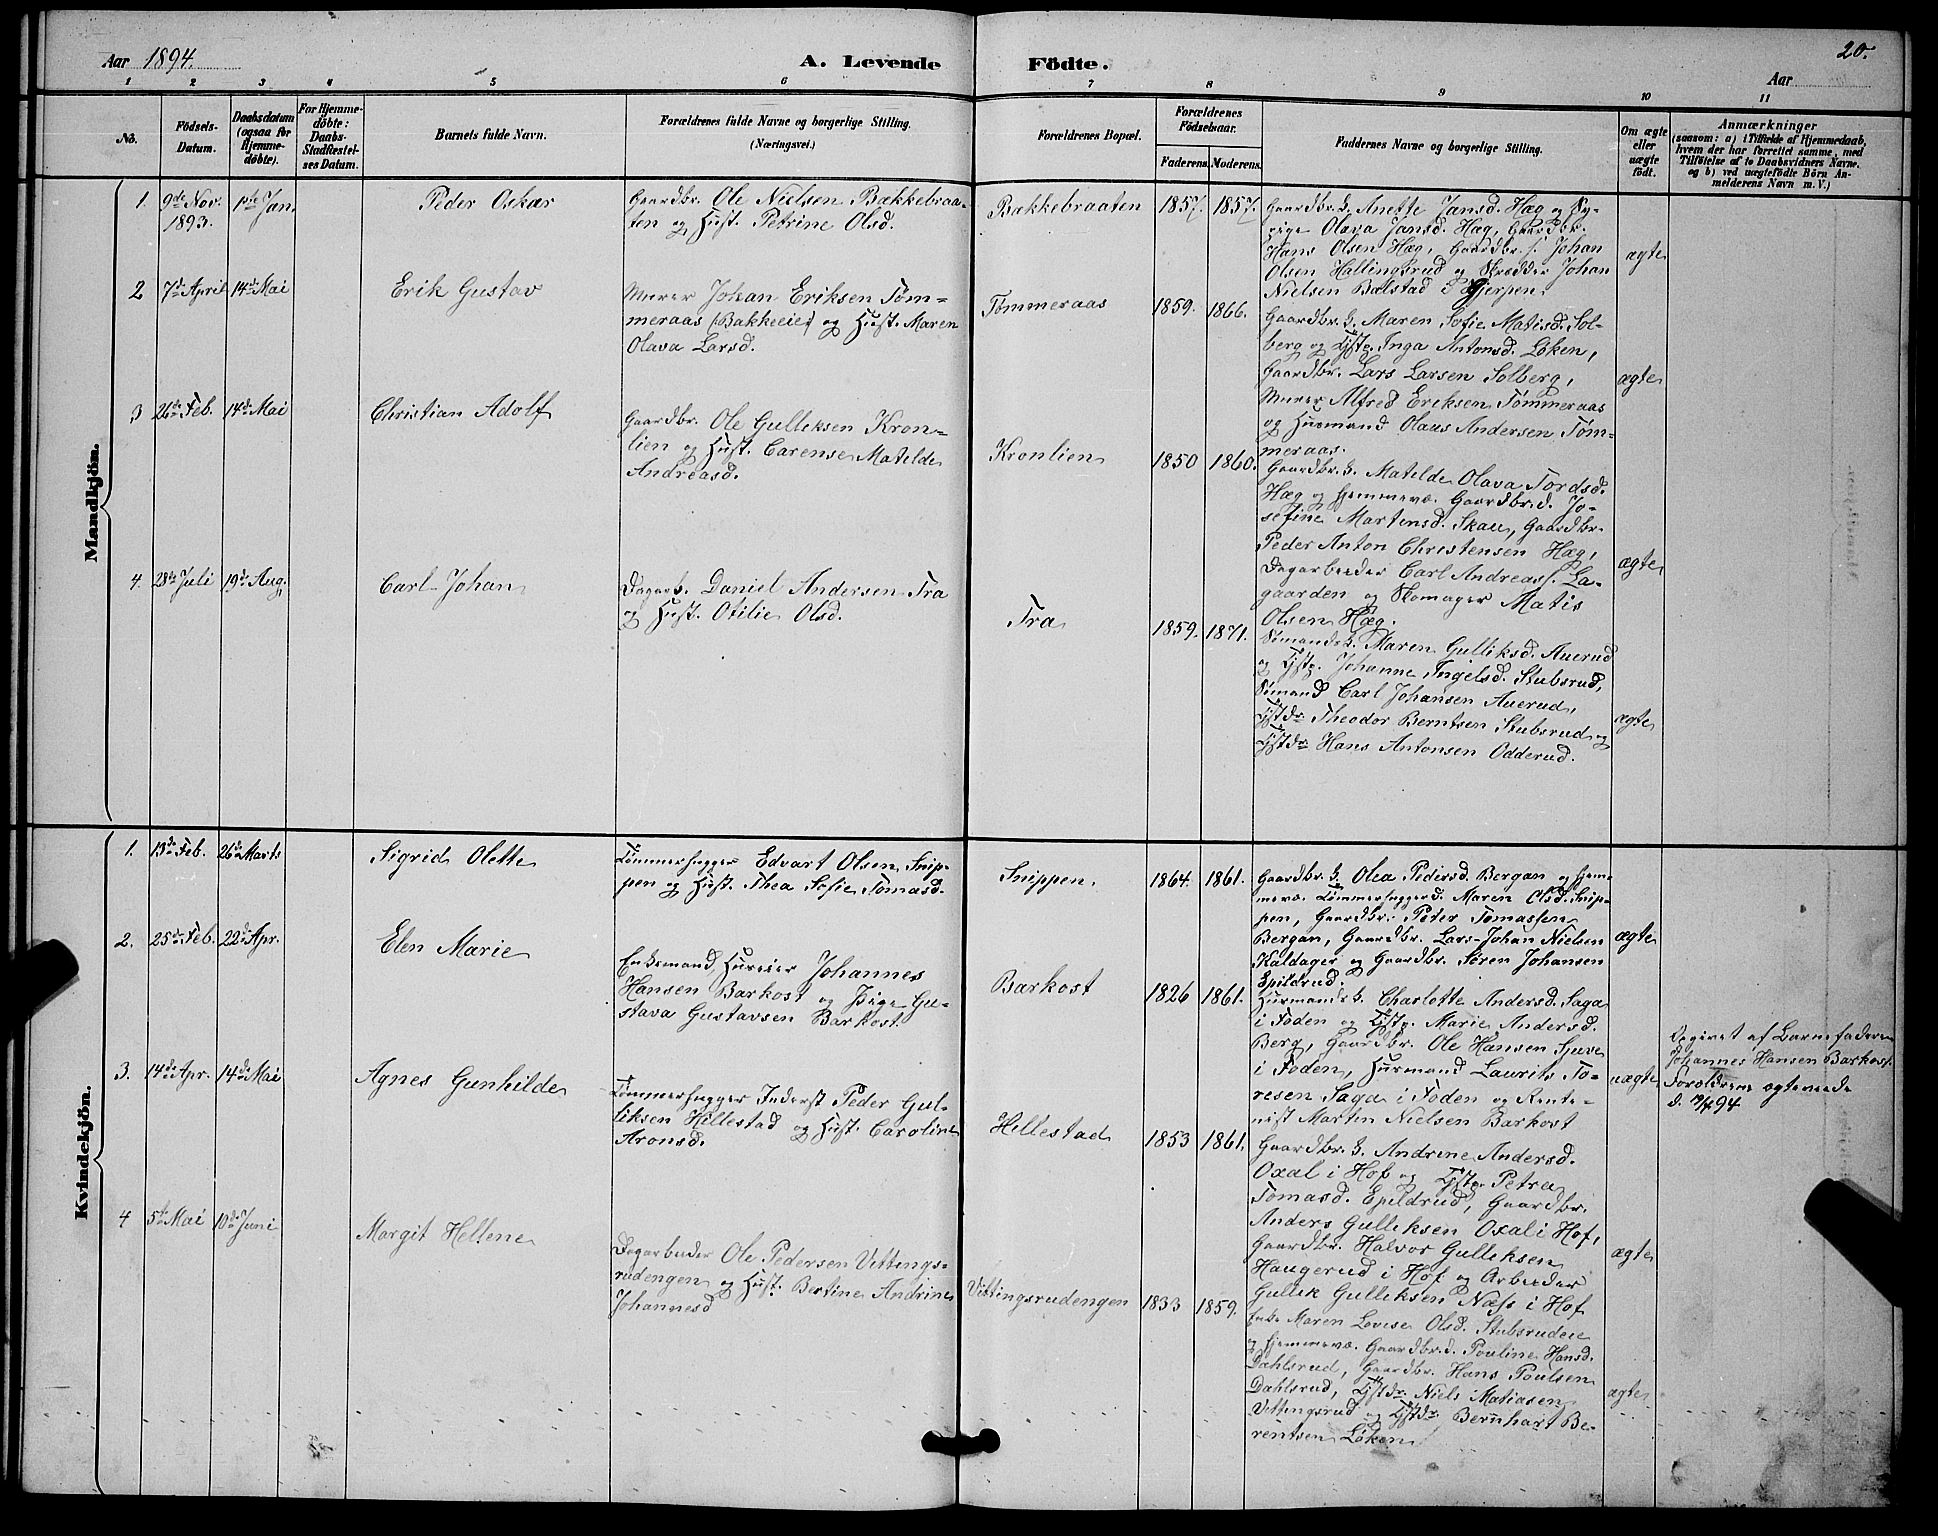 Aar 1894.
A. Levende Födte.
20.
Aar
1 2 3 4 5 6 7 8 9 10 11
No.
Födsels-Datum.
Daabsdatum (ogsaa for Hjemmedöbte).
For Hjemmedöbte: Daabs-Stadfæstelses Datum.
Barnets fulde Navn.
Forældrenes fulde Navne og borgerlige Stilling.
(Næringsvei.)
Forældrenes Bopæl.
Forældrenes Födselsaar.
Faderens. Moderens.
Faddernes Navne og borgerlige Stilling.
Om ægte eller uægte födt.
Anmærkninger
(saasom: a) i Tilfælde af Hjemmedaab,
hvem der har forrettet samme, med
Tilföielse af to Daabsvidners Navne,
og b) ved uægtefödte Börn An-
melderens Navn m. V.)
Mandkjön.
1. 9de Nov. 1893. 1ste Jan. Peder Oskar
Gaardbr. Ole Nielsen Bækkebraa-
ten og Hust. Petrine Olsd.
Bakkebraaten 1857. 1857.
Gaardbr.k. Anette Jansd. Hæg og Py-
pige Olava Jansd. Hæg, Gaardbr.
Hans Olsen Hæg, Gaardbr.s. Johan
Olsen Hallingsrud og Skrædder Johan
Nielsen Bølstad i Gjerpen.
ægte
2 7de April 14de Mai Erik Gustav
Murer Johan Eriksen Töm-
meraas (Bakkeeier) og Hust. Maren
Olava Larsd.
Tømmeraas 1859. 1866.
Gaardbr.k. Maren Sofie Matisd. Sol-
berg og Tjstp. Inga Antonsd. Löken,
Gaardbr. Lars Larsen Solberg,
Murer Alfred Eriksen Tömmeraas
og Husmand Olaus Andersen Töm-
meraas.
ægte
3 26de Feb. 14de Mai Christian Adolf
Gaardbr. Ole Gulliksen Kron-
lien og Hust. Carense Matilde
Andreasd.
Kronlien 1850 1860.
Gaardbr.k. Matilde Olava Tordsd.
Hæg og Hjemmevæ. Gaardbr.d. Jo-
sefine Martinsd. Skau, Gaardbr.
Peder Anton Christensen Hæg,
Dagarbeider Carl Andreass. La-
gaarden og Skomager Matis
Olsen Hæg.
ægte
4. 28de Juli 19de Aug. Carl Johan
Dagarb. Daniel Andersen Tra
og Hust. Otilie Olsd.
Tra 1859. 1871.
Sömands k. Maren Gulliksd. Auerud
og Tjstp. Johanne Ingelsd. Stubsrud,
Sömand Carl Johansen Auerud,
Tjstdr. Theodor Berntsen Stubsrud og
Tjstdr. Hans Antonsen Odderud.
ægte
Kvindekjön.
1. 13de Feb. 26de Marts Sigrid Olette
Tömmerhugger Edvart Olsen Snip-
pen og Hust. Thea Sofie Tomasd.
Snippen. 1864. 1861.
Gaardbr.k. Olea Pedersd. Bergan og Hjem-
mevæ. Tömmerhuggerd. Maren Olsd. Snip-
pen, Gaardbr. Peter Tomassen
Bergan, Gaardbr. Lars Johan Nielsen
Kaldager og Gaardbr. Sören Johansen
Epildrud.
ægte
2. 25de Feb. 22de Apr. Elen Marie
Enkemand, Huseier Johannes
Hansen Barkost og Pige Gu-
stava Gustavsen Barkost.
Barkost 1826 1861.
Husmandsk. Charlotte Andersd. Saga
i Foden og Tjstp. Marie Andersd.
Berg, Gaardbr. Ole Hansen Sjuve
i Foden, Husmand Laurits To-
resen Saga i Foden og Rente-
nist Martin Nielsen Barkost
uægte
Opgivet af Barnefaderen
Johannes Hansen Barkost.
Foreldrene egteviede
3. 14de Apr. 14de Mai Agnes Gunhilde
Tömmerhugger Inderst Peder Gul-
liksen Hillestad og Hust. Caroline
Aronsd.
Hillestad 1853 1861.
Gaardbr.k. Andrine Andersd.
Oxal i Hof og Tjstp. Petra
Tomasd. Epildrud, Gaardbr.
Anders Gulliksen Oxal i Hof,
Gaardbr. Halvor Gulliksen
Haugerud i Hof og Arbeider
Gullik Gulliksen Næss i Hof
ægte
4 5de Mai 10de Juni Margit Hellene
Dagarbeider Ole Pedersen Vittings-
rudengen og Hust. Bertine Andrine
Johannesd
Vittingsrudengen 1833 1859.
Enke Maren Lovise Olsd. Stubsrudeie
og Hjemmevæ. Gaardbr.d. Pouline Hansd.
Dahlsrud, Gaardbr. Hans Poulsen
Dahlsrud, Tjstdr. Niels Matiasen
Vittingsrud og Tjstdr. Bernhart Be-
rentsen Löken.
ægte